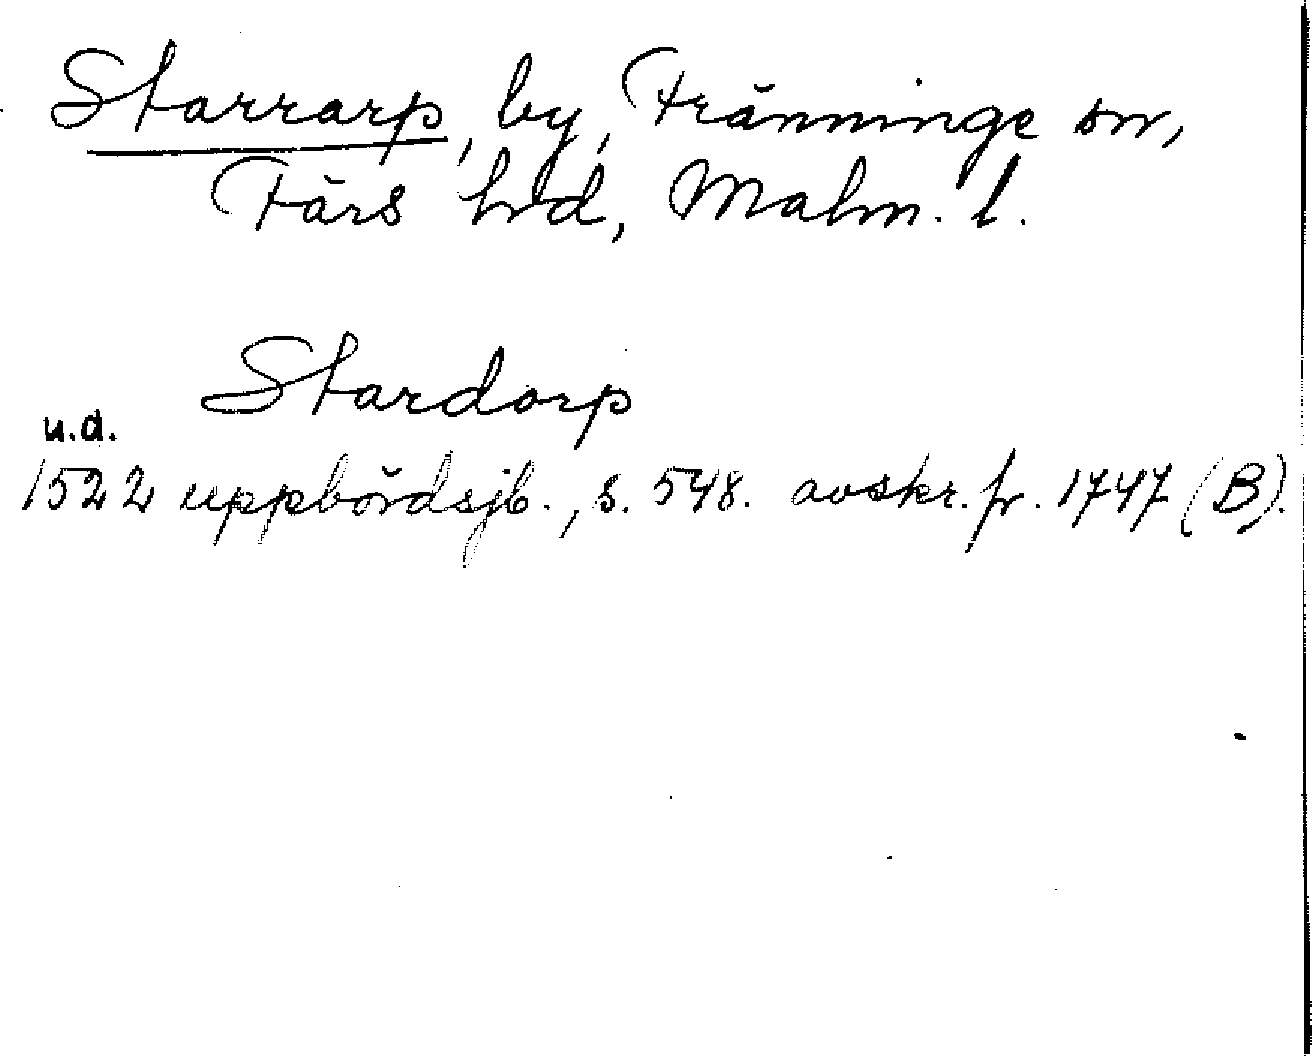 Starrarp, by, Fränninge sn,
Färs hrd, Malm. l.
Stardorp
u.d.
1522 uppbördsjb., s. 548. avskr. fr. 1747 (B).